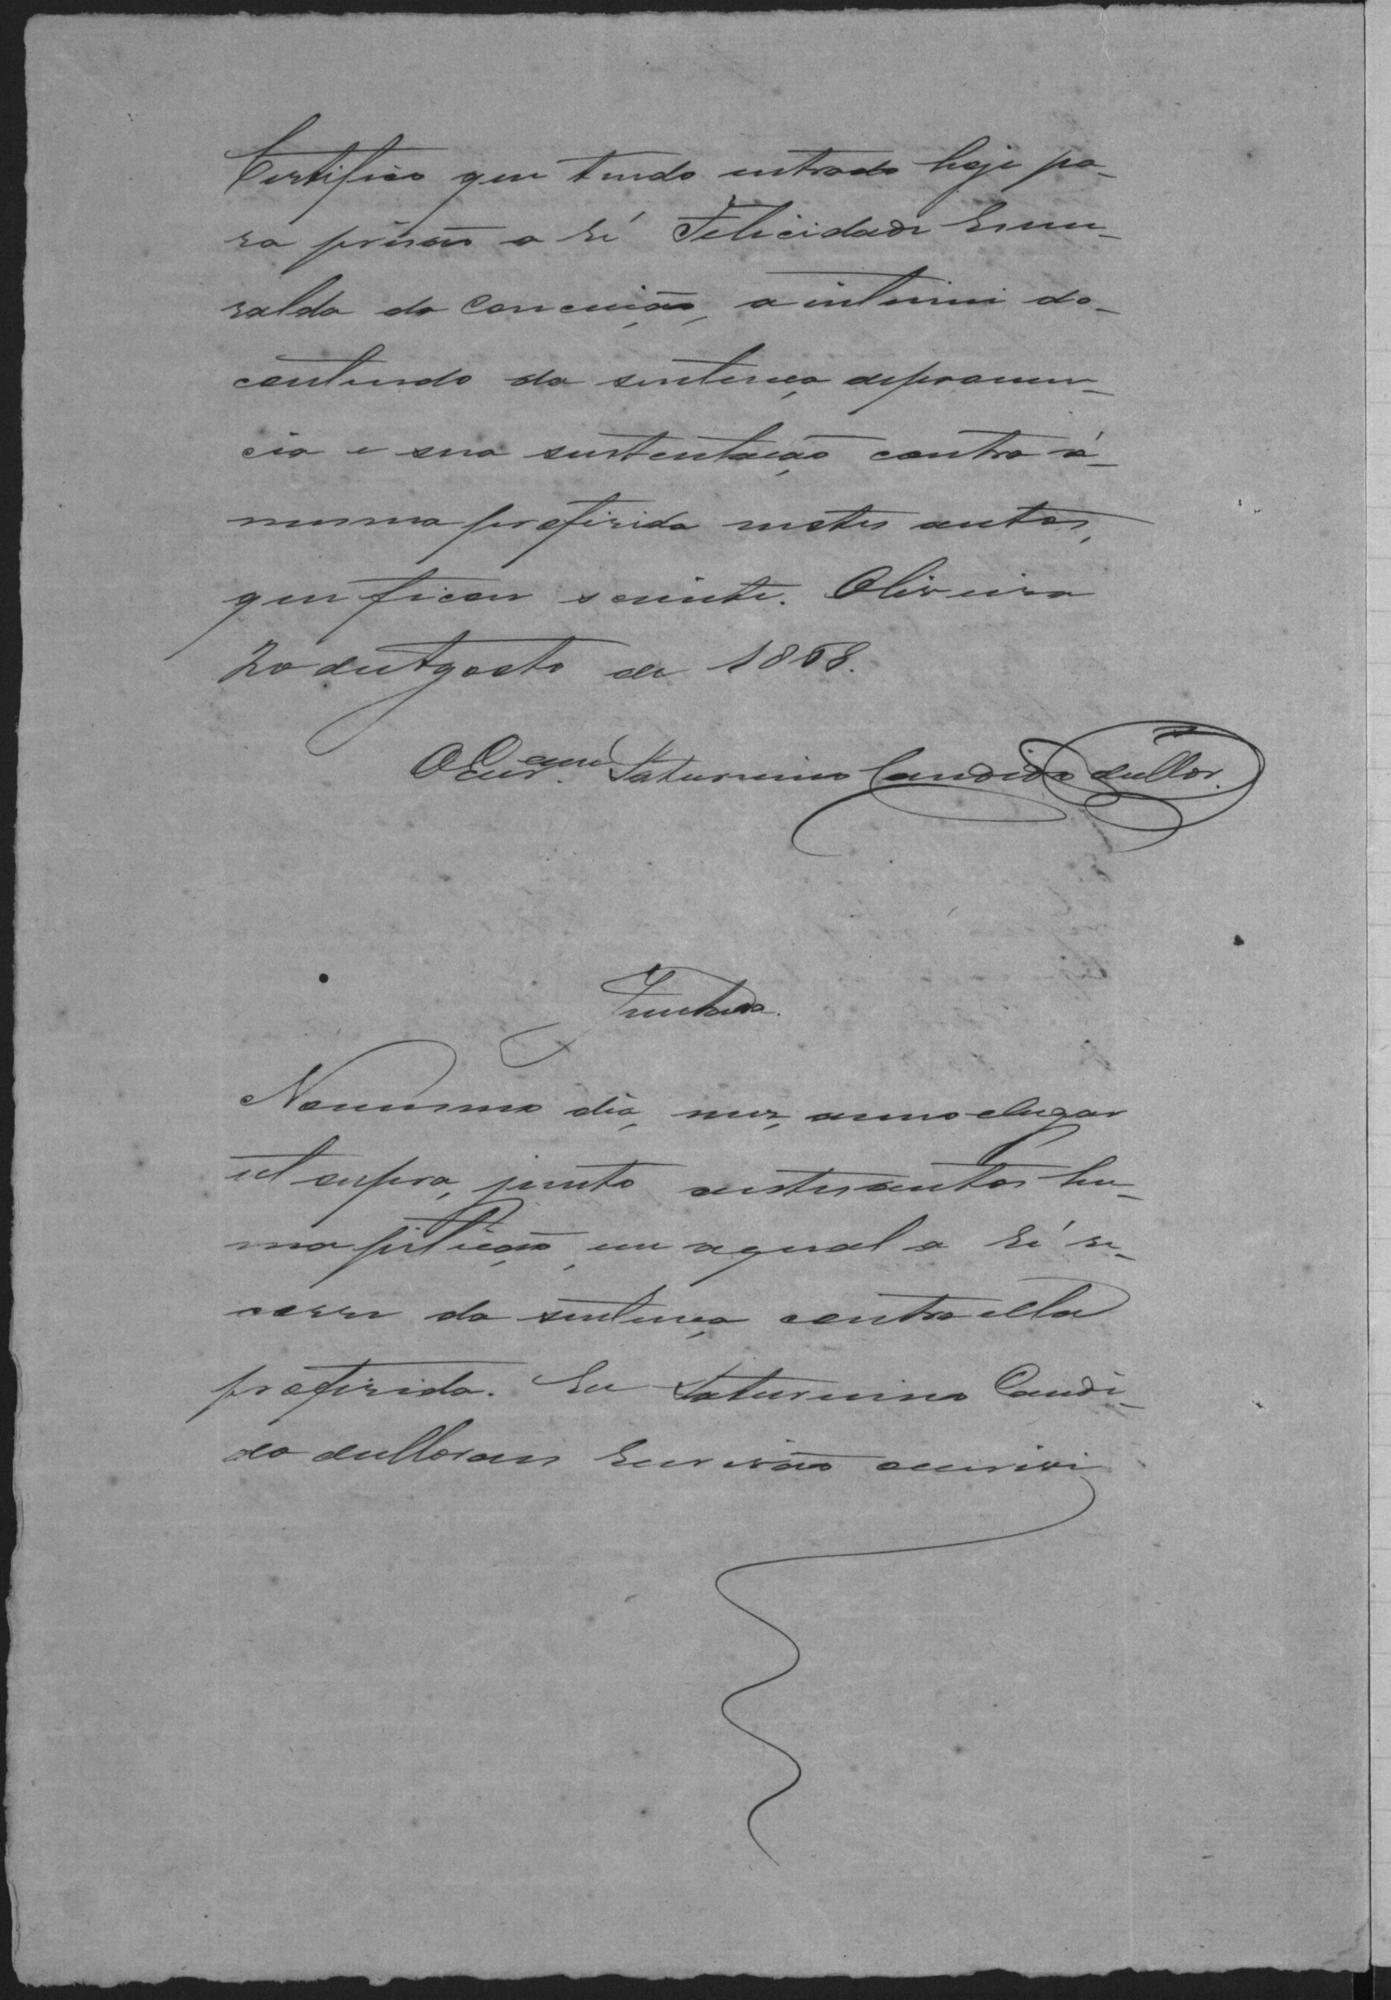 Certifico que tendo entrado hoje pa-
ra prisão a Ré Felicidade Esme-
ralda da Conceição, a intimei do
contendo da sentença depronun-
cia e sua sustentação contra á
mesma proferida nestes autos,
que ficou sciente. Oliveira
20 de Agosto de 1868.
O Escr.am Saturnino Candido
Juntada.
No mesmo dia, mez, anno elugar
ut supra, junto aestes autos hu-
ma petição, em aqual a Ré re-
corre da sentença contra ella
proferida. Eu Saturnino Candi-
do Escrivão escrivi